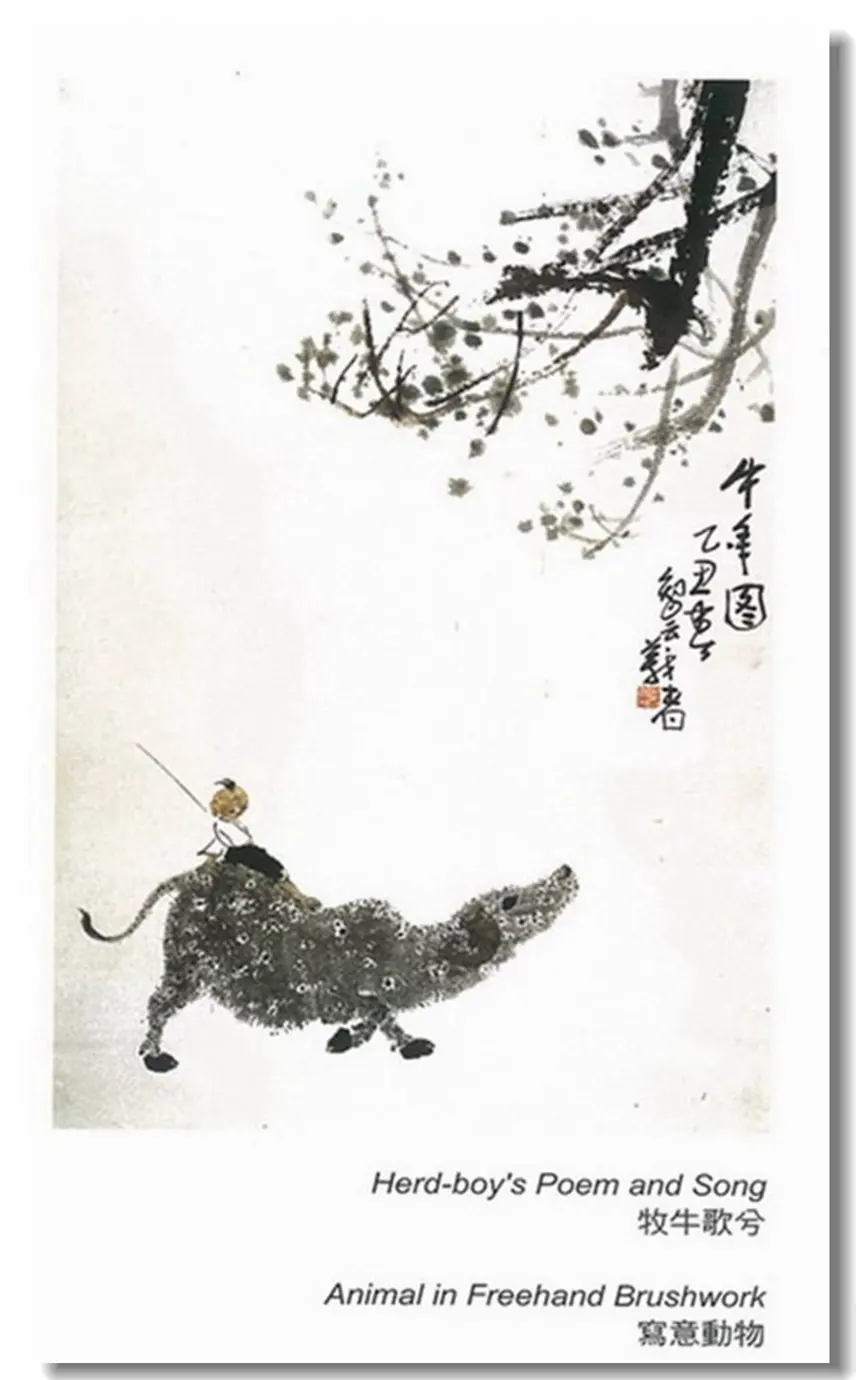 牛年图
乙丑
Herd-boy's Poem and Song
牧牛歌兮
Animal in Freehand Brushwork
寫意動物